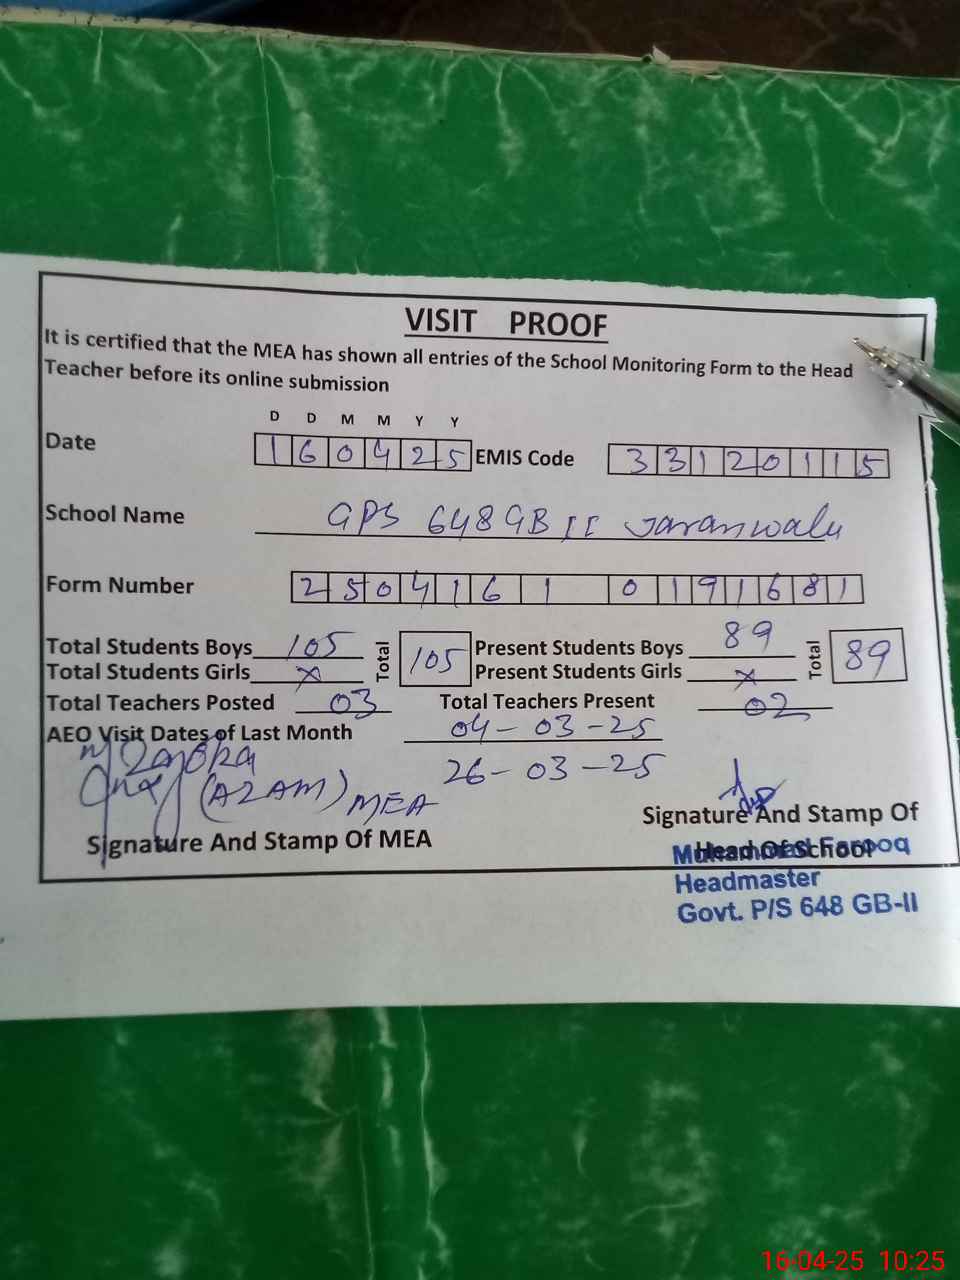 VISIT PROOF
It is certified that the MEA has shown all entries of the School Monitoring Form to the Head
Teacher before its online submission
D D M M Y Y
Date 160425 EMIS Code 33120115
School Name GPS 648 GB II Jaranwala
Form Number 2504161 0191681
Total Students Boys 105 Total 105 Present Students Boys 89 Total 89
Total Students Girls x Present Students Girls x
Total Teachers Posted 03 Total Teachers Present 02
AEO Visit Dates of Last Month 04-03-25
26-03-25
(AZAM) MEA
Signature And Stamp Of MEA
Signature And Stamp Of
Head Of School
Muhammad Farooq
Headmaster
Govt. P/S 648 GB-II
16-04-25 10:25